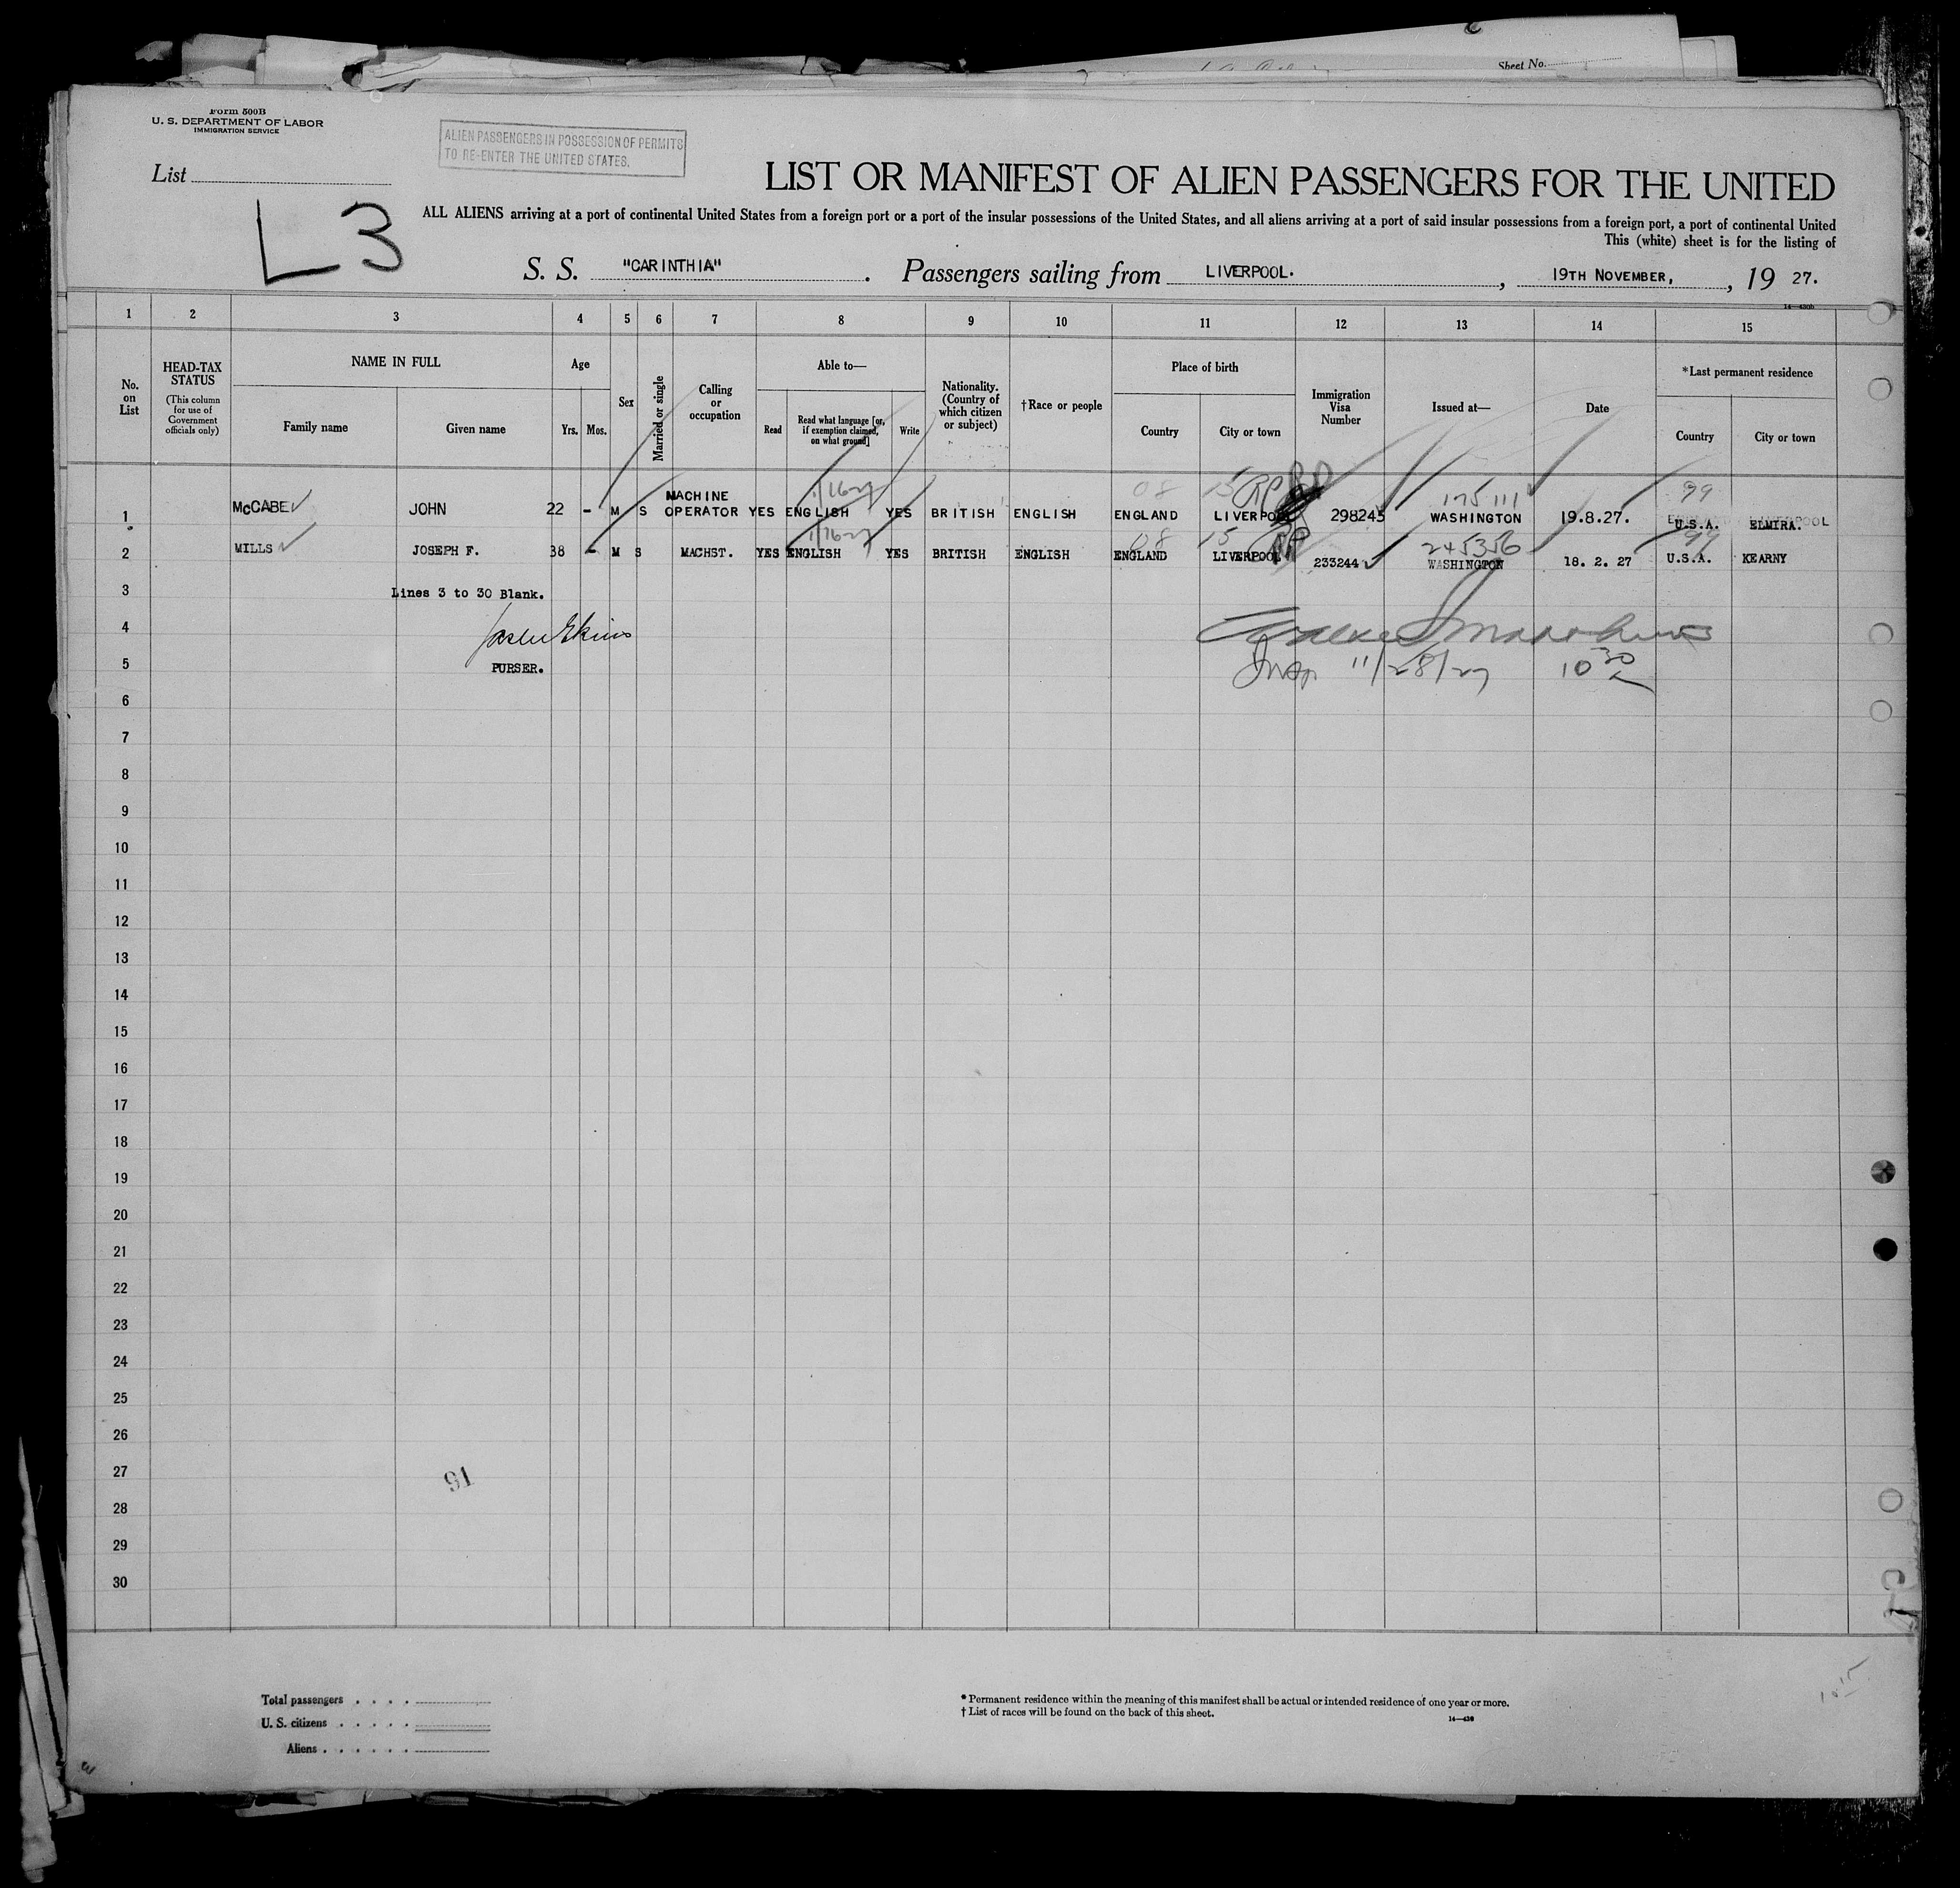 Sheet No.
Form 500B
U. S. DEPARTMENT OF LABOR
IMMIGRATION SERVICE
ALIEN PASSENGERS IN POSSESSION OF PERMITS
TO RE-ENTER THE UNITED STATES.
List
L3
LIST OR MANIFEST OF ALIEN PASSENGERS FOR THE UNITED
ALL ALIENS arriving at a port of continental United States from a foreign port or a port of the insular possessions of the United States, and all aliens arriving at a port of said insular possessions from a foreign port, a port of continental United
This (white) sheet is for the listing of
S. S. "CARINTHIA". Passengers sailing from LIVERPOOL., 19TH NOVEMBER,, 19 27.
14—430b
1 2 3 4 5 6 7 8 9 10 11 12 13 14 15
No. on List
HEAD-TAX STATUS
(This column for use of Government officials only)
NAME IN FULL
Family name
Given name
Age
Yrs. Mos.
Sex
Married or single
Calling or occupation
Able to—
Read
Read what language [or, if exemption claimed, on what ground]
Write
Nationality. (Country of which citizen or subject)
†Race or people
Place of birth
Country
City or town
Immigration Visa Number
Issued at—
Date
*Last permanent residence
Country
City or town
1/16-27 08 15 RP 175111 99
1 McCABE JOHN 22 - M S MACHINE OPERATOR YES ENGLISH YES BRITISH ENGLISH ENGLAND LIVERPOOL 298245 WASHINGTON 19.8.27. U.S.A. ELMIRA.
1/16-27 08 15 245356 99
2 MILLS JOSEPH F. 38 - M S MACHST. YES ENGLISH YES BRITISH ENGLISH ENGLAND LIVERPOOL 233244 WASHINGTON 18. 2. 27 U.S.A. KEARNY
3 Lines 3 to 30 Blank.
4
5 PURSER. Insp 11/28/27 10 30
6
7
8
9
10
11
12
13
14
15
16
17
18
19
20
21
22
23
24
25
26
27 91
28
29
30
Total passengers . . . .
U. S. citizens . . . . .
Aliens . . . . . .
* Permanent residence within the meaning of this manifest shall be actual or intended residence of one year or more.
† List of races will be found on the back of this sheet.
14—430